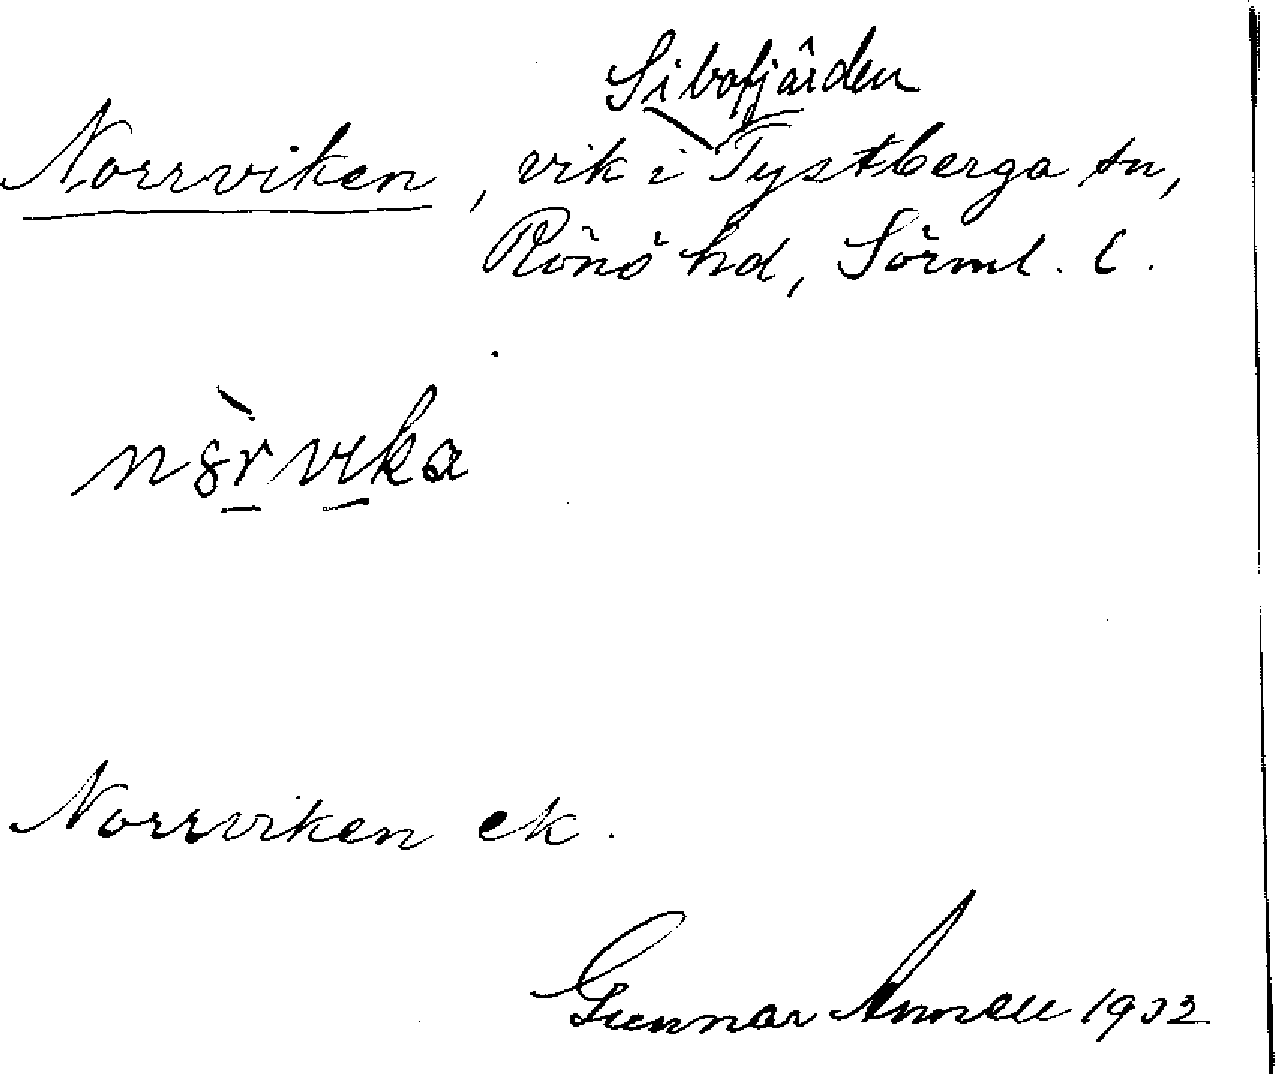 Sibofjärden
Norrviken, vik i Tystberga sn,
Rönö hd, Sörml. l.
nòrvika
Norrviken ek.
Gunnar Annell 1932